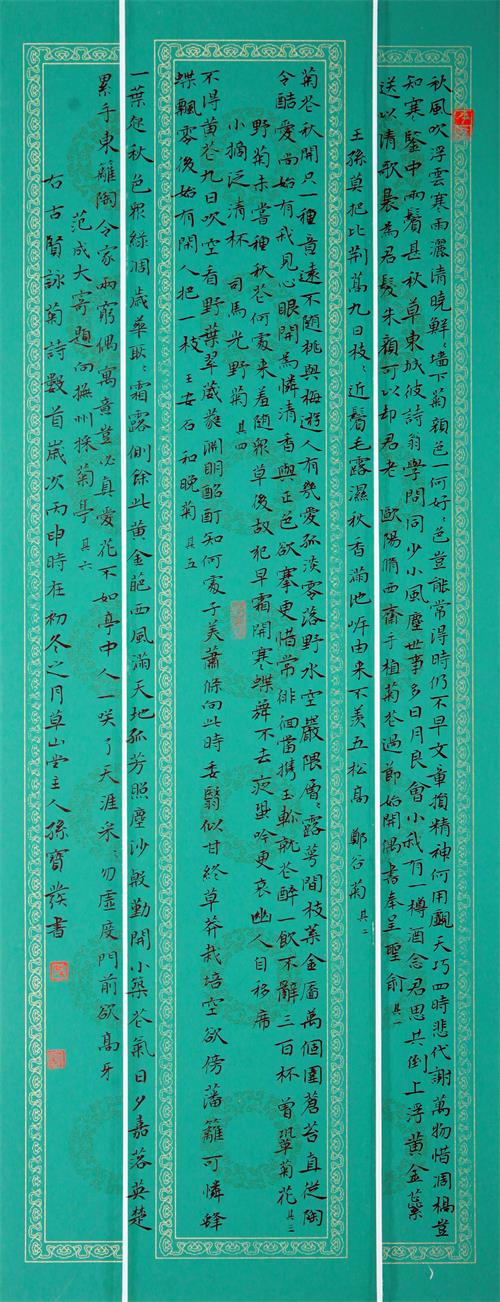 秋風吹浮雲寒雨灑清曉鮮〻墻下菊顏色一何好〻色豈能常得時仍不早文章損精神何用覷天巧四時悲代謝萬物惜凋槁豈
知寒鑒中兩鬢甚秋草東城彼詩翁學問同少小風塵世事多日月良會小我有一樽酒念君思共倒上浮黃金蕊
送以清歌裊為君發朱顏可以却君老 歐陽脩西齋手植菊花過節始開偶書奉呈聖俞 其一
王孫莫把比荊萬九日枝〻近鬢毛露濕秋香滿池岸由來不羨五松高 鄭谷菊 其二
菊花秋開只一種意遠不隨桃與梅遊人有幾愛孤淡零落野水空巖隈層〻露萼間枝葉金靨萬個圍蒼苔直從陶
令酷愛尚始有我見心眼開為憐清香與正色欲搴更惜常徘徊當携玉軫就花醉一飲不辭三百杯 曾鞏菊花 其三
野菊未嘗種秋花何處來羞隨衆草後故犯早霜開寒蝶舞不去夜蛩吟更哀幽人自移席
小摘泛清杯 司馬光野菊 其四
不得黃花九日吹空看野葉翠葳蕤淵明酩酊知何處子美蕭條向此時委翳似甘終草莽栽培空欲傍藩籬可憐蜂
蝶飄零後始有閑人把一枝 王安石 和晚菊 其五
一葉怨秋色衆綠凋歲華耿〻霜露側餘此黃金葩西風滿天地孤芳照塵沙殷勤開小築花氣日夕嘉落英楚
累手東籬陶令家兩窮偶寓意豈必真愛花不如亭中人一咲了天涯采〻勿虛度門前欲高牙
范成大寄題向撫州採菊亭 其六
右古賢詠菊詩數首歲次丙申時在初冬之月草山堂主人孫寶發書